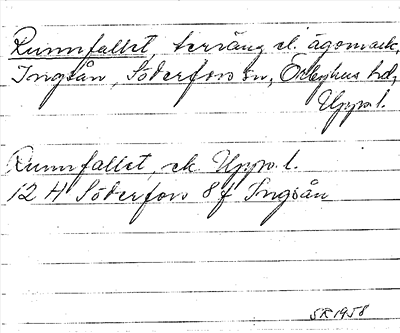 Rumnfallet, terräng el. ägomark,
Ingsån, Söderfors sn, Örbyhus hd,
Uppl.
Rumnfallet, ek Uppl.
12 H Söderfors 8 f Ingsån
SR 1958